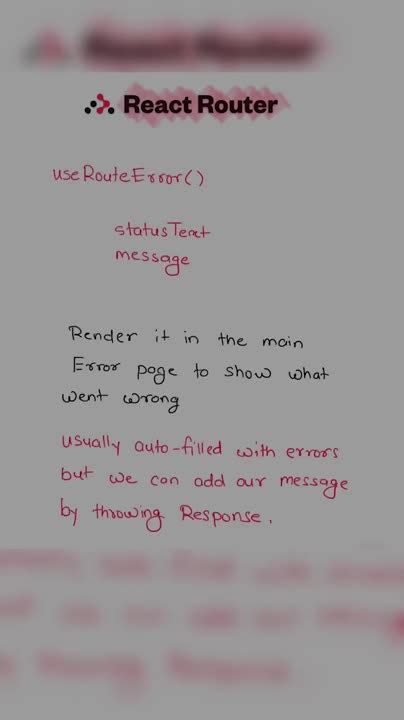 React Router
React Router
useRouteError()
statusText
message
Render it in the main
Error page to show what
went wrong
usually auto-filled with errors
but we can add our message
by throwing Response.